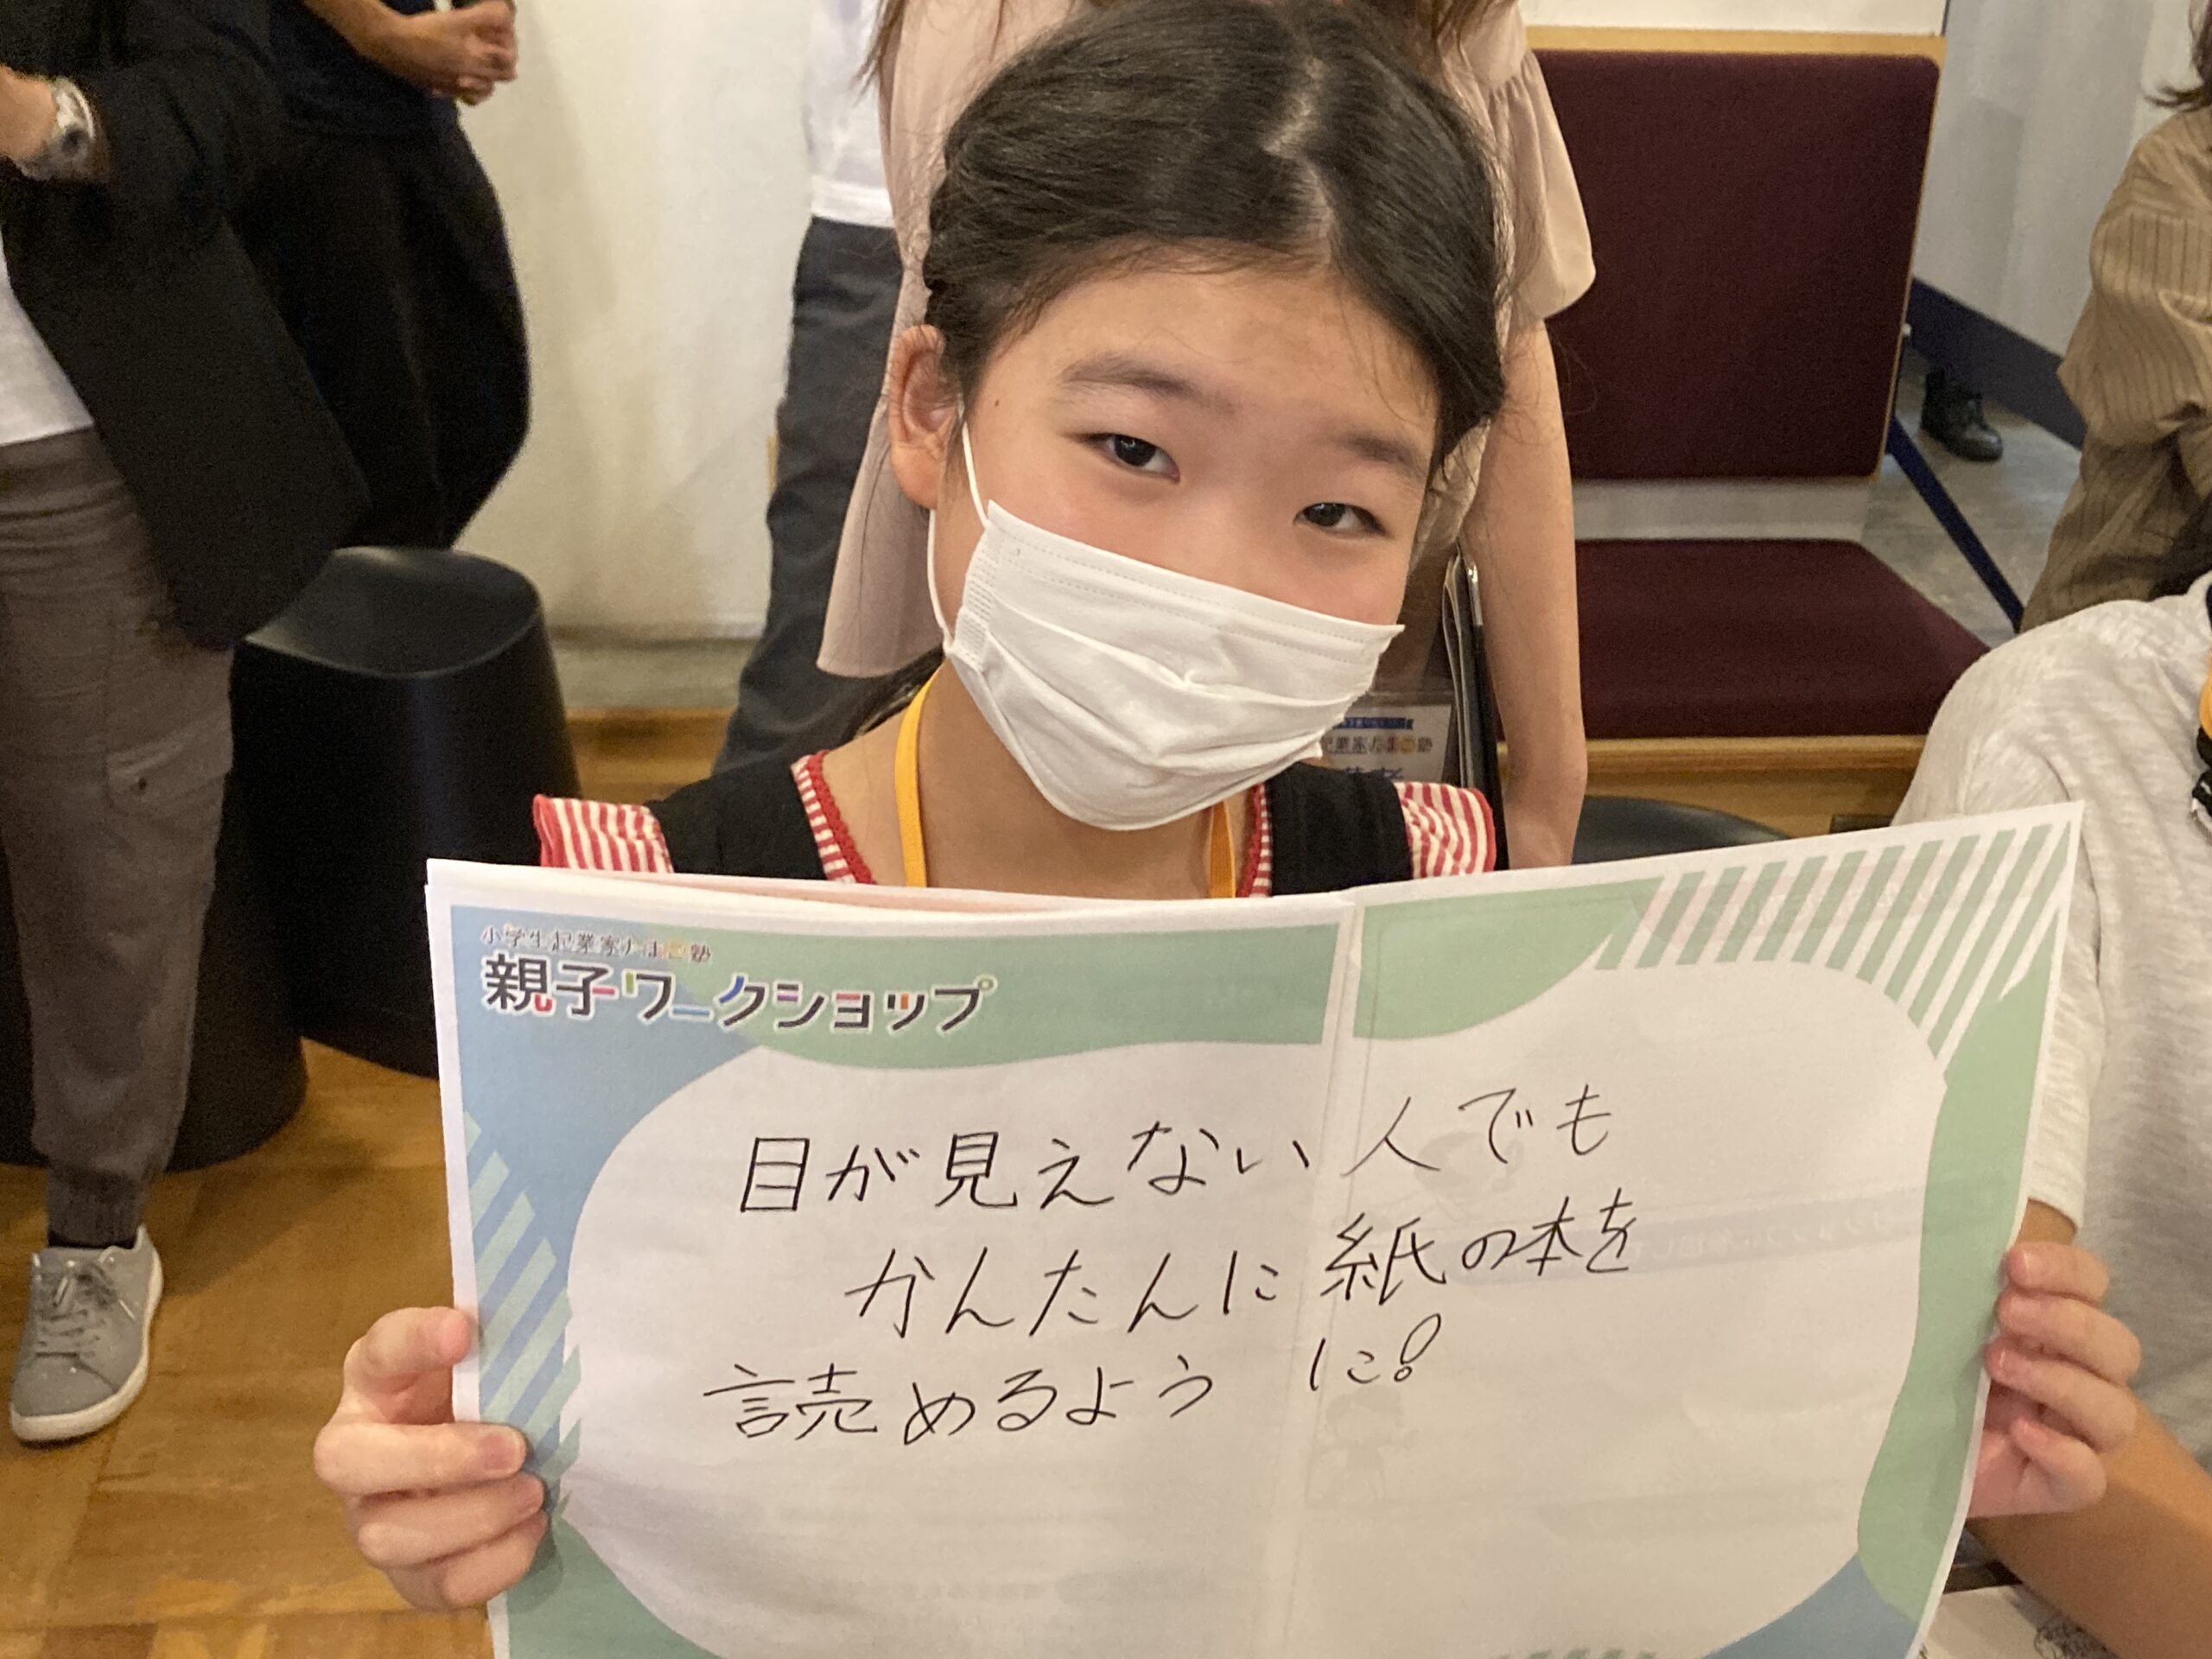 小学生起業家たまご塾
親子ワークショップ
目が見えない人でも
かんたんに紙の本を
読めるように!
起業家たまご塾